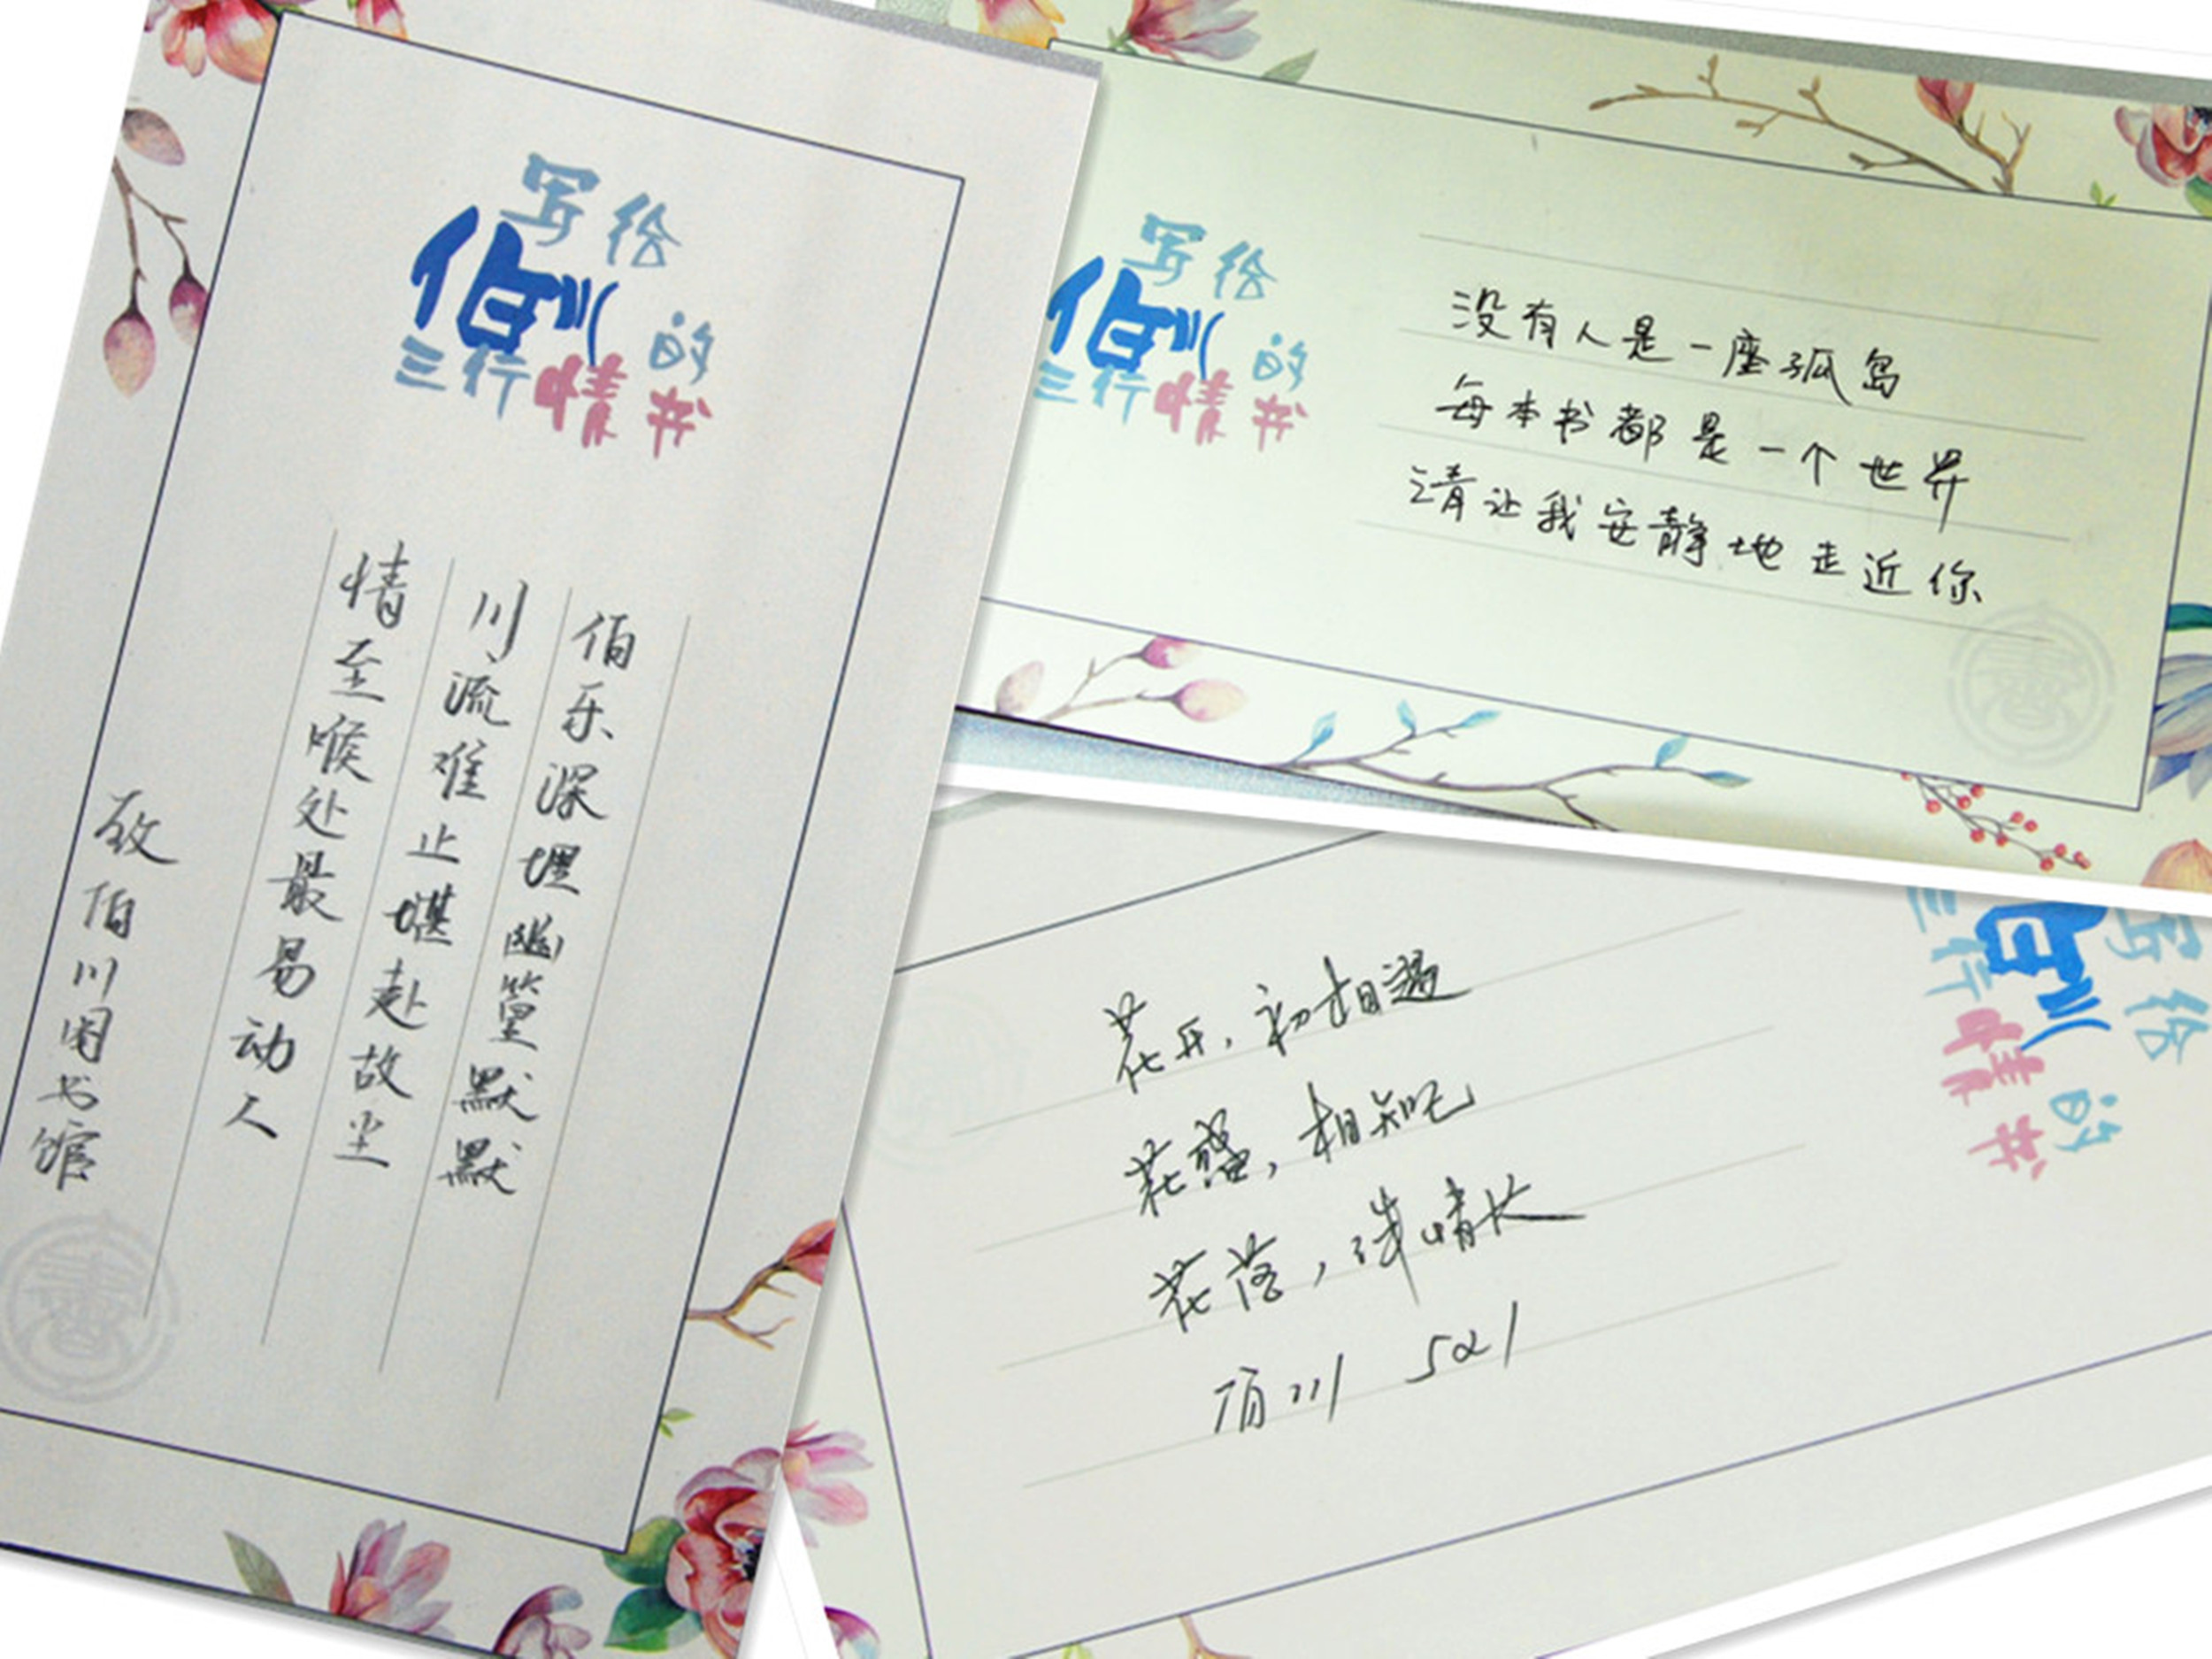 写给
伯川的
三行情书
伯乐深埋幽篁默默
川流难止堪赴故尘
情至喉处最易动人
致伯川图书馆
写给
伯川的
三行情书
没有人是一座孤岛
每本书都是一个世界
请让我安静地走近你
写给
伯川的
三行情书
花开,初相遇
花盛,相知己
花落,诗情长
伯川 521